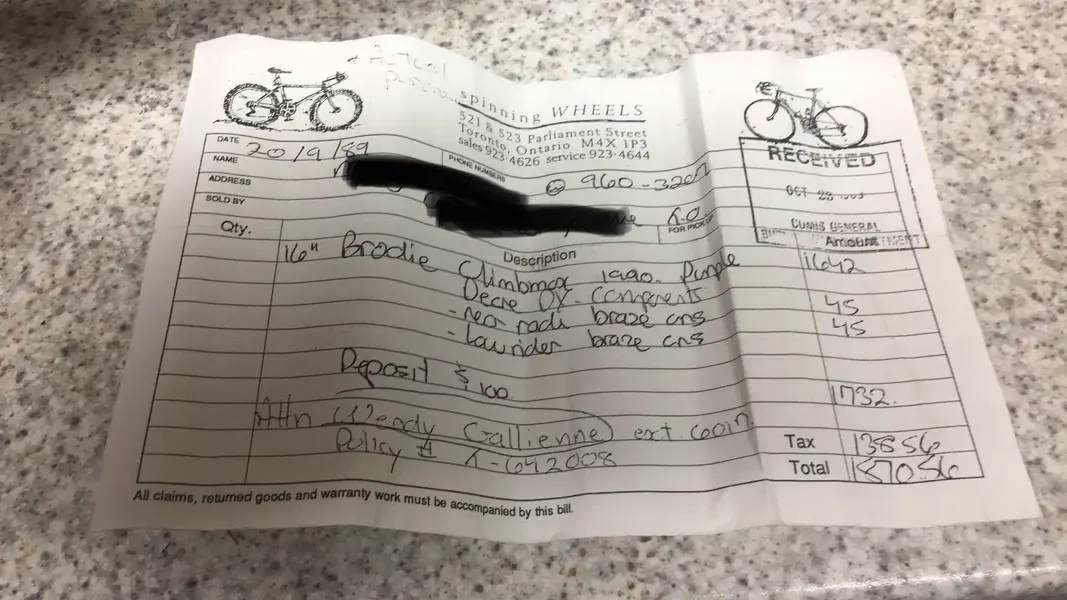 Actual
spinning WHEELS
521 & 523 Parliament Street
Toronto, Ontario M4X 1P3
sales 923·4626 service 923·4644
RECEIVED
OCT 23
CUMIS GENERAL
DATE 20/9/89
NAME
PHONE NUMBERS
960-320
ADDRESS
SOLD BY
FOR PICK UP
Qty.
Description
Amount
16" Brodie Climbmax 1990. Purple 1642
Deore DX. Components
- rear rack braze ons 45
- lowrider braze ons 45
Deposit $100
1732.
Attn Wendy Gallienne ext.
Policy # 642008
Tax 138 56
Total 1870.56
All claims, returned goods and warranty work must be accompanied by this bill.